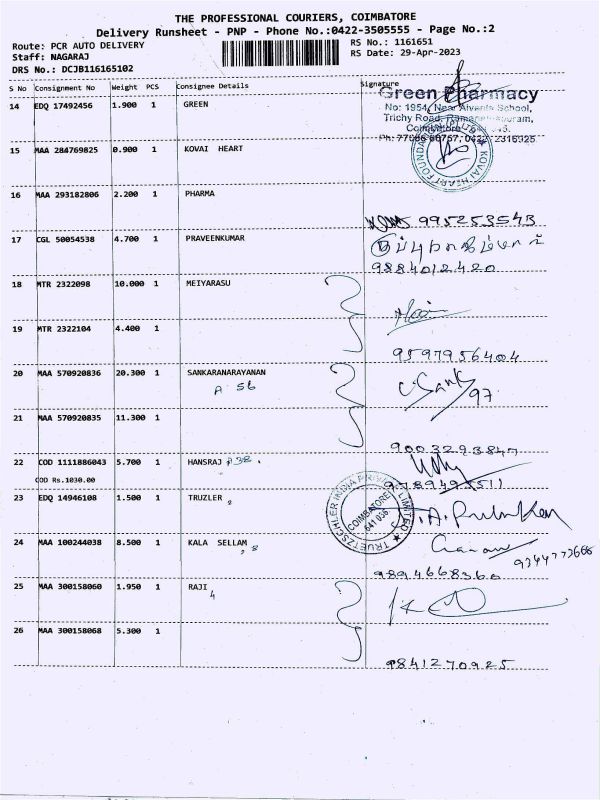 THE PROFESSIONAL COURIERS, COIMBATORE
Delivery Runsheet - PNP - Phone No.:0422-3505555 - Page No.:2
Route: PCR AUTO DELIVERY RS No.: 1161651
Staff: NAGARAJ RS Date: 29-Apr-2023
DRS No.: DCJB116165102
S No Consignment No Weight PCS Consignee Details Signature
14 EDQ 17492456 1.900 1 GREEN
Green Pharmacy
No: 1954, Near Alvernia School,
Trichy Road, Ramanathapuram,
Coimbatore
15 MAA 284769825 0.900 1 KOVAI HEART
KOVAI HEART FOUNDATION
16 MAA 293182806 2.200 1 PHARMA
995253543
17 CGL 50054538 4.700 1 PRAVEENKUMAR
9884012420
18 MTR 2322098 10.000 1 MEIYARASU
19 MTR 2322104 4.400 1
9597956404
20 MAA 570920836 20.300 1 SANKARANARAYANAN
A 56
97
21 MAA 570920835 11.300 1
9003293847
22 COD 1111886043 5.700 1 HANSRAJ
COD Rs.1030.00
9789495511
23 EDQ 14946108 1.500 1 TRUZLER
TRUETZSCHLER INDIA PRIVATE LIMITED
COIMBATORE
641 036.
24 MAA 100244038 8.500 1 KALA SELLAM
9344773666
9894668360
25 MAA 300158060 1.950 1 RAJI
26 MAA 300158068 5.300 1
9841270925